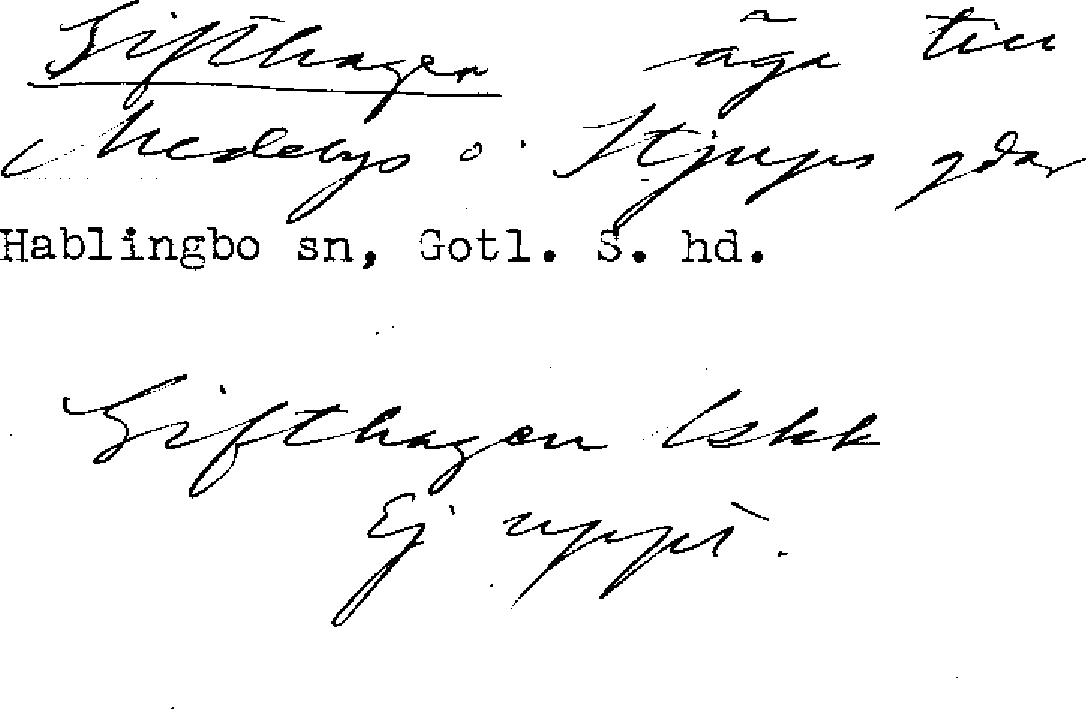 Gifthagen äga till
Medebys o. Stjups gdar
Hablingbo sn, Gotl. S. hd.
Gifthagen lskk
Ej uppt.